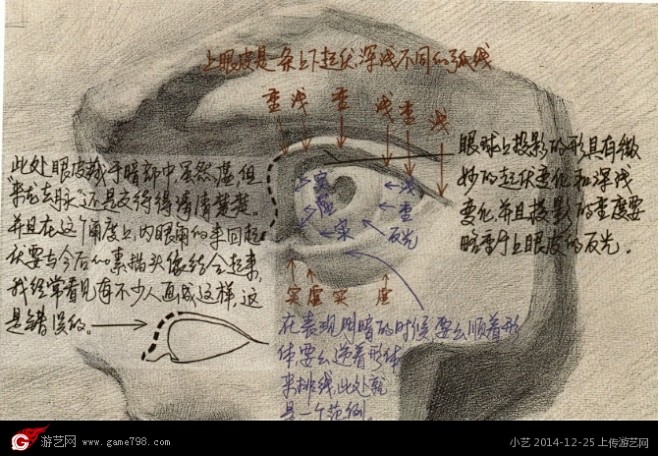 上眼皮是一条上下起伏,深浅不同的弧线
重 浅 重 浅 重 浅
此处眼皮藏于暗部中虽然虚,但
来龙去脉还是交待得清清楚楚。
并且在这个角度上,内眼角的来回起
伏要与今后的素描头像结合起来,
我经常看见有不少人画成这样,这
是错误的。
眼球上投影的形具有微
妙的起伏变化和深浅
变化,并且投影的重度要
略重于上眼皮的反光。
实 浅
重
反光
实 虚 实 虚
在表现明暗的时候,要么顺着形
体,要么逆着形体
来排线,此处就
是一个范例。
游艺网 www.game798.com
小艺 2014-12-25 上传游艺网